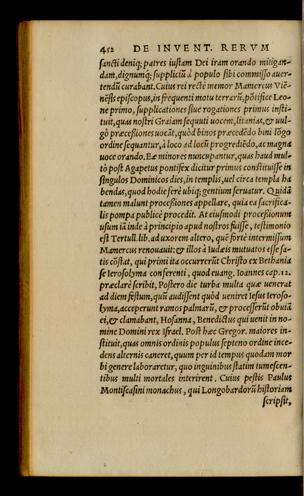 452 DE INVENT. RERVM
sancti deniq; patres iustam Dei iram orando mitigan-
dam, dignumq; suppliciũ à populo sibi commisso auer-
tendũ curabant. Cuius rei rectè memor Mamercus Viẽ-
nẽsis episcopus, in frequenti motu terrarũ, põtifice Leo-
ne primo, supplicationes siue rogationes primus insti-
tuit, quas nostri Graiam sequuti uocem, litanias, & uul-
gò processiones uocãt, quòd binos præcedẽdo bini lõgo
ordine sequantur, à loco ad locũ progrediẽdo, ac magna
uoce orando. Eæ minores nuncupantur, quas haud mul-
tò pòst Agapetus pontifex dicitur primus constituisse in
singulos Dominicos dies, in templis, uel circa templa ha
bendas, quod hodie ferè ubiq; gentium seruatur. Quidã
tamen malunt processiones appellare, quia ea sacrifica-
lis pompa publicè procedit. At eiusmodi processionum
usum iã inde à principio apud nostros fuisse, testimonio
est Tertull. lib. ad uxorem altero, quẽ fortè intermissum
Mamercus renouauit: & illos à Iudæis mutuatos esse sa-
tis cõstat, qui primi ita occurrerũt Christo ex Bethania
se Ierosolyma conferenti, quod euang. Ioannes cap. 12.
præclarè scribit, Postero die turba multa quæ uenerat
ad diem festum, quũ audissent quòd ueniret Iesus Ieroso-
lyma, acceperunt ramos palmarũ, & processerũt obuiã
ei, & clamabant, Hosanna, Benedictus qui uenit in no-
mine Domini rex Israel. Post hæc Gregor. maiores in-
stituit, quas omnis ordinis populus septeno ordine ince-
dens alternis caneret, quum per id tempus quodam mor
bi genere laboraretur, quo inguinibus statim tumescen-
tibus multi mortales interirent. Cuius pestis Paulus
Montiscasini monachus, qui Longobardorũ historiam
scripsit,